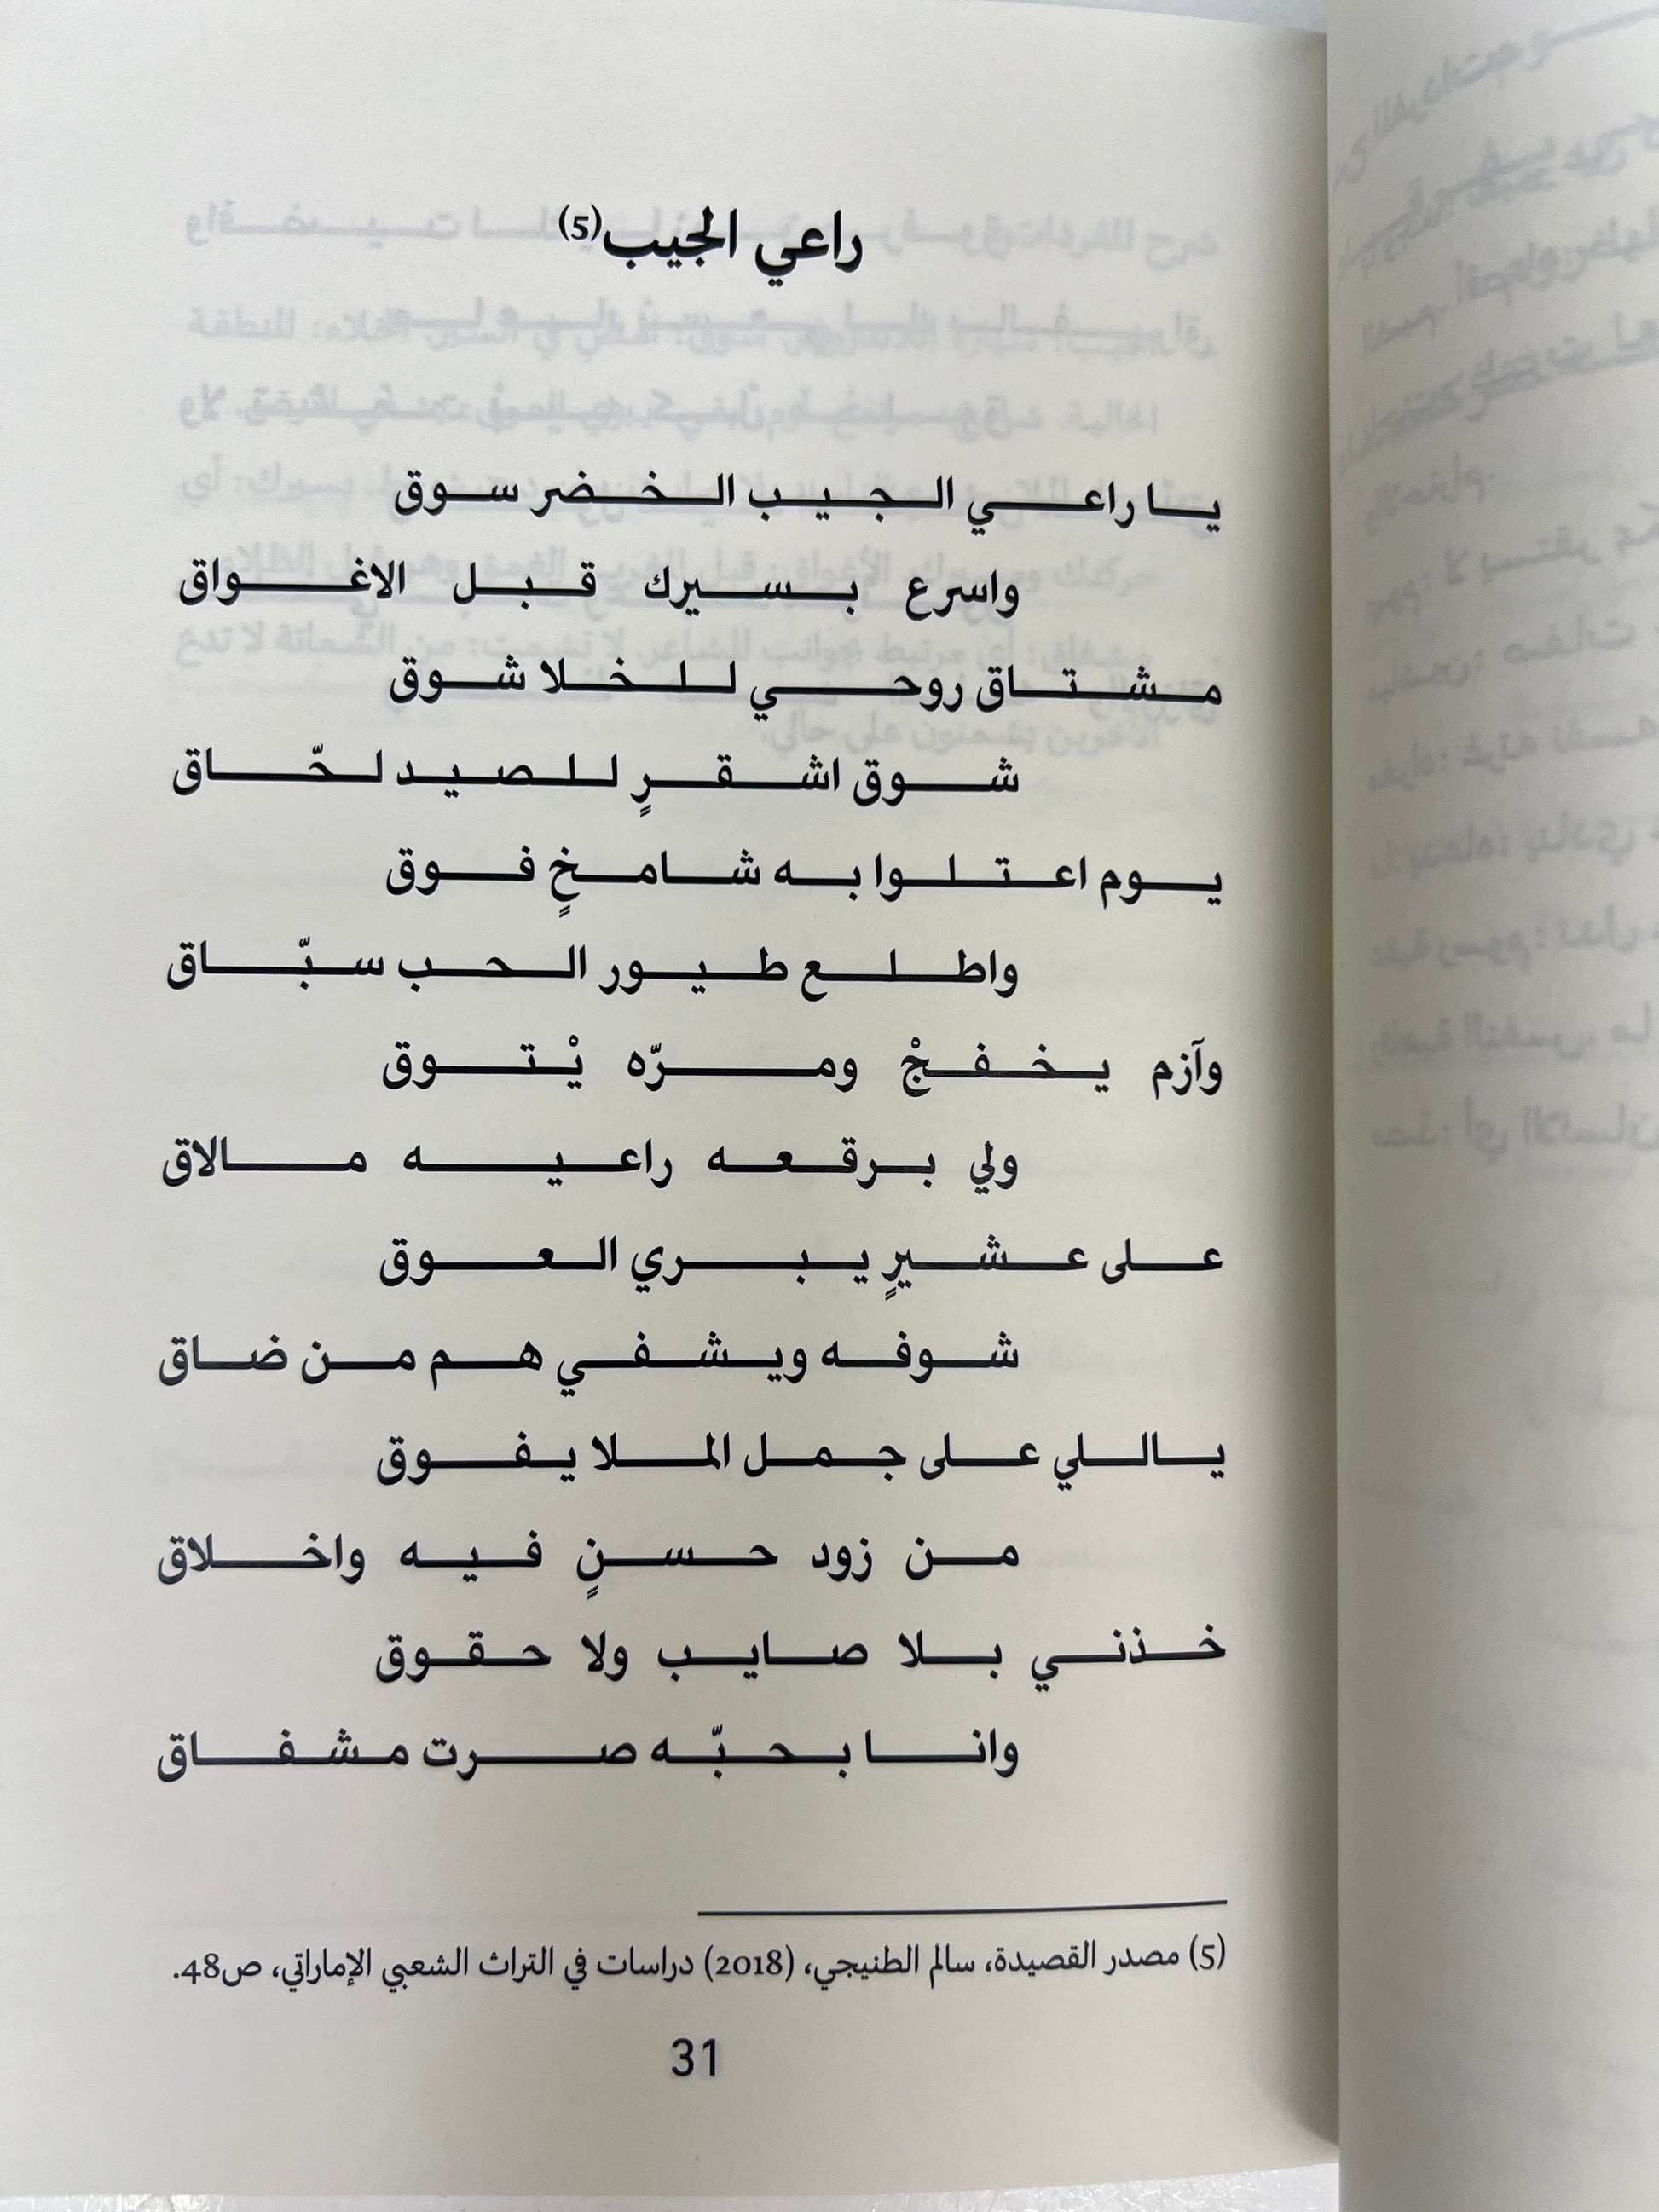 راعي الجيب(5)
يا راعي الجيب الخضر سوق
واسرع بسيرك قبل الاغواق
مشتاق روحي للخلا شوق
شوق اشقرٍ للصيد لحّاق
يوم اعتلوا به شامخٍ فوق
واطلع طيور الحب سبّاق
وآزم يخفجْ ومرّه يْتوق
ولي برقعه راعيه مالاق
على عشيرٍ يبري العوق
شوفه ويشفي هم من ضاق
ياللي على جمل الملا يفوق
من زود حسنٍ فيه واخلاق
خذني بلا صايب ولا حقوق
وانا بحبّه صرت مشفاق
(5) مصدر القصيدة، سالم الطنيجي، (2018) دراسات في التراث الشعبي الإماراتي، ص48.
31